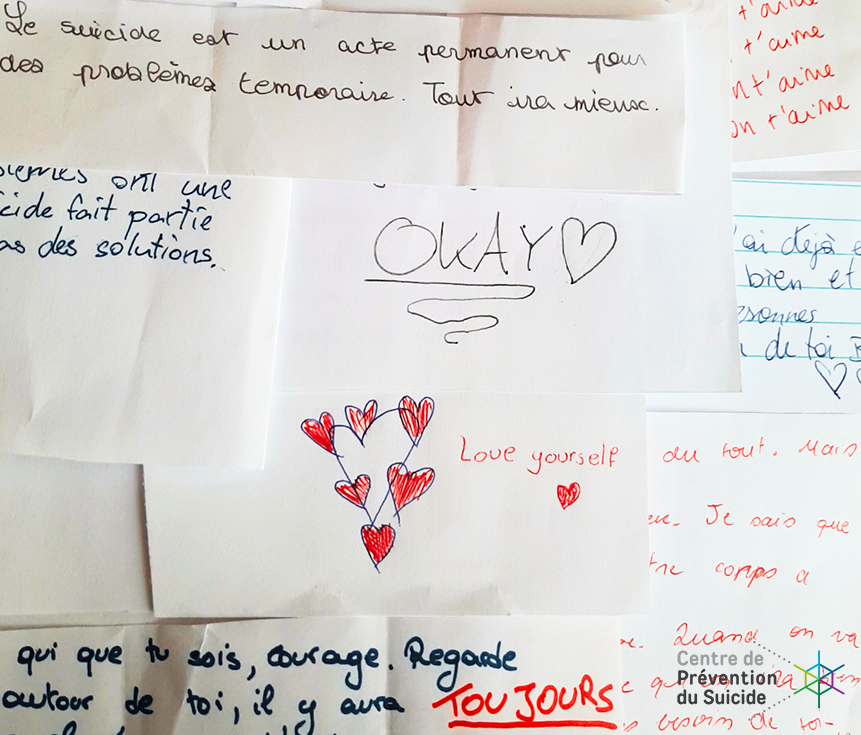 Le suicide est un acte permanent pour
des problèmes temporaire. Tout ira mieux.
t'aime
t'aime
t'aime
on t'aime
ont une
fait partie
des solutions.
OKAY
'ai déjà
bien et
de toi
Love yourself
du tout. Mais
Je sais que
corps a
Quand on va
besoin de toi-
qui que tu sois, courage. Regarde
autour de toi, il y aura TOUJOURS
Centre de
Prévention
du Suicide